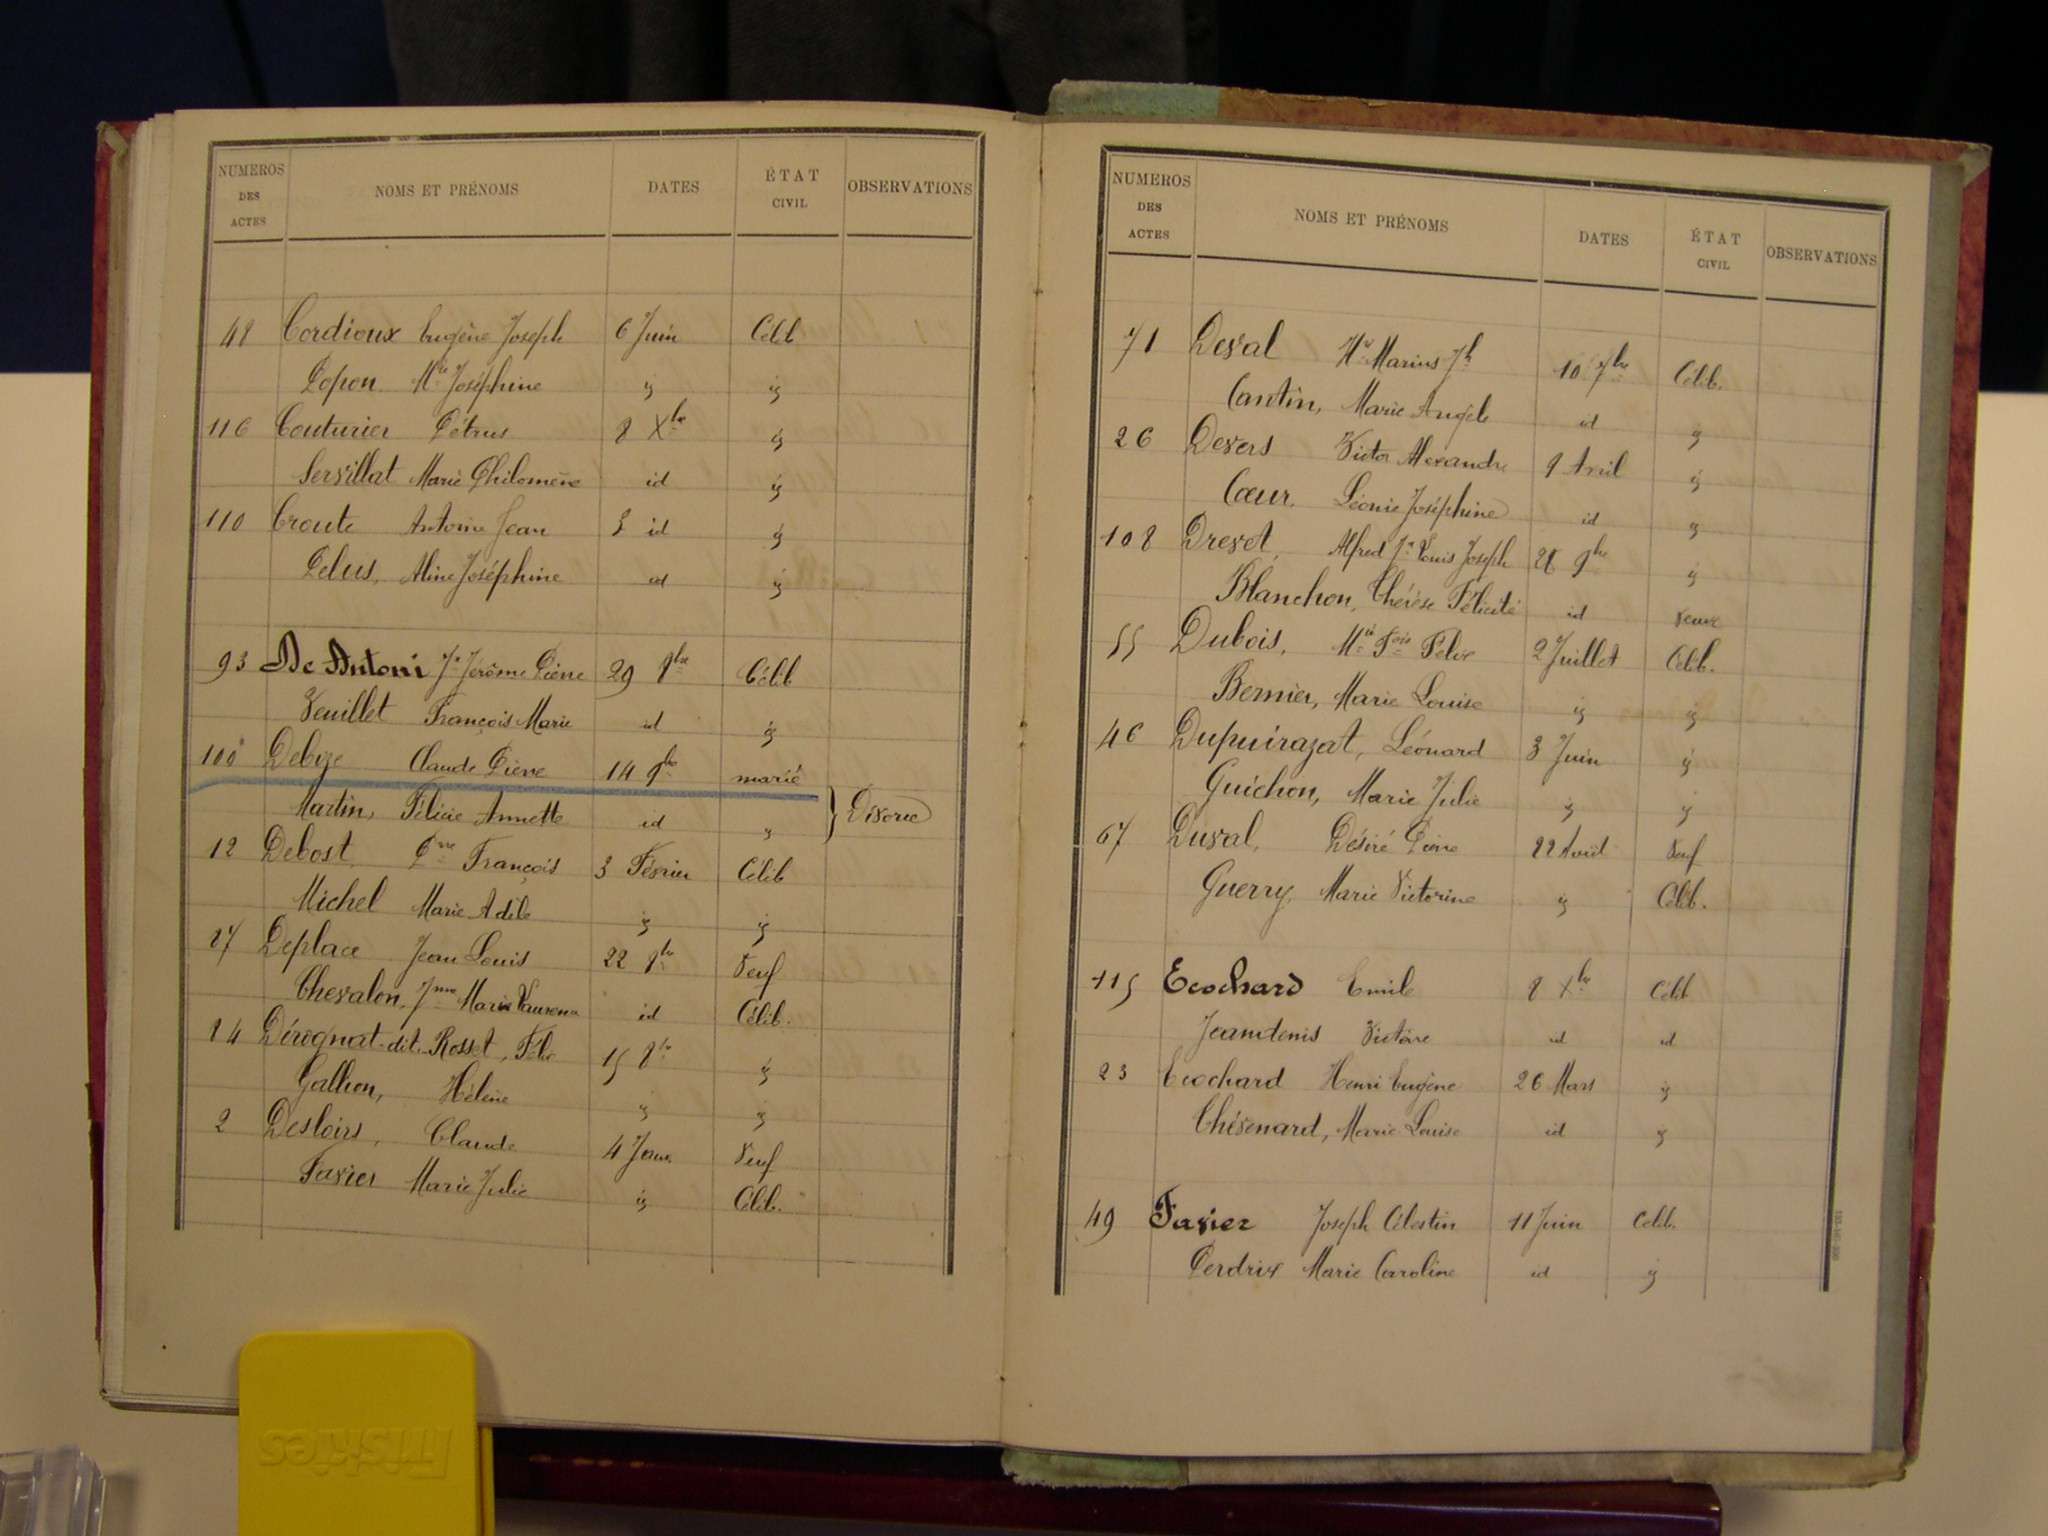 NUMEROS DES ACTES NOMS ET PRÉNOMS DATES ÉTAT CIVIL OBSERVATIONS
48 Cordioux Eugène Joseph 6 Juin Célib
Popon Mie Joséphine id id
116 Couturier Pétrus 8 Xbre id
Servillat Marie Philomène id id
110 Croute Antoine Jean 3 id id
Pelus, Aline Joséphine id id
93 De Antoni Jn Jérôme Pierre 29 8bre Célib
Veuillet François Marie id id
100 Debize Claude Pierre 14 9bre marié
Martin, Félicie Annette id id } Divorce
12 Debost Pre François 3 Février Célib
Michel Marie Adèle id id
87 Deplace Jean Louis 22 8bre Veuf
Chevalon, Jnne Marie id Célib.
84 Dérognat-dit-Rosset, Félix 15 8bre id
Gallion, Hélène id id
2 Desloirs, Claude 4 Janv. Veuf
Favier Marie Julie id Célib.
NUMEROS DES ACTES NOMS ET PRÉNOMS DATES ÉTAT CIVIL OBSERVATIONS
71 Deval Marius Jh 10 7bre Célib.
Cantin, Marie Angèle id id
26 Devers Victor Alexandre 9 Avril id
Cœur, Léonie Joséphine id id
108 Drevet, Alfred Jn Louis Joseph 9bre id
Blanchon, Thérèse Félicité id Veuve
55 Dubois, Mie Fois Félix 2 Juillet Célib.
Bernier, Marie Louise id id
46 Dupuirazat, Léonard 3 Juin id
Guichon, Marie Julie id id
67 Duval, Désiré Pierre 22 Août Veuf
Guerry, Marie Victorine id Célib.
115 Ecochard Emile 8 Xbre Célib
Jeandenis Victoire id id
23 Ecochard Henri Eugène 26 Mars id
Thévenard, Marie Louise id id
49 Favier Joseph Célestin 11 Juin Célib.
Perdrix Marie Caroline id id
Friskies